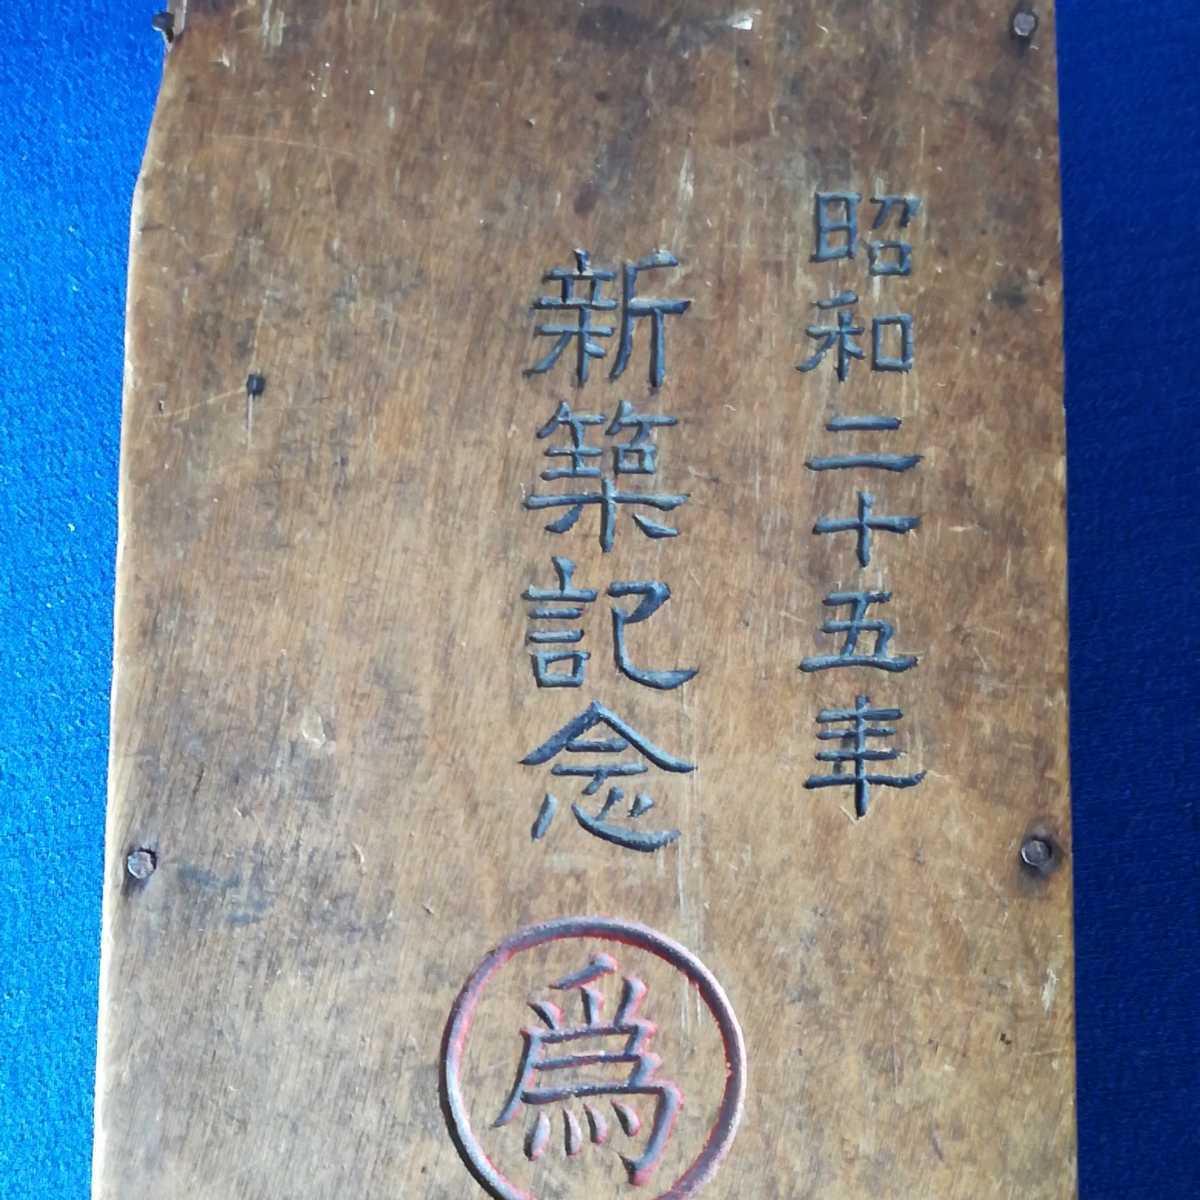 昭和二十五年
新築記念
爲